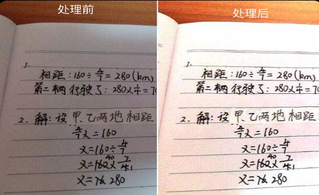 处理前
处理后
1.
相距：160÷4/7=280(km)
第二辆行驶了：280×1/4=7
2. 解：设甲乙两地相距
4/7x=160
x=160÷4/7
x=160×7/4
x=280
1.
相距：160÷4/7=280(km)
第二辆行驶了：280×1/4=70
2. 解：设甲乙两地相距
4/7x=160
x=160÷4/7
x=160×7/4
x=280